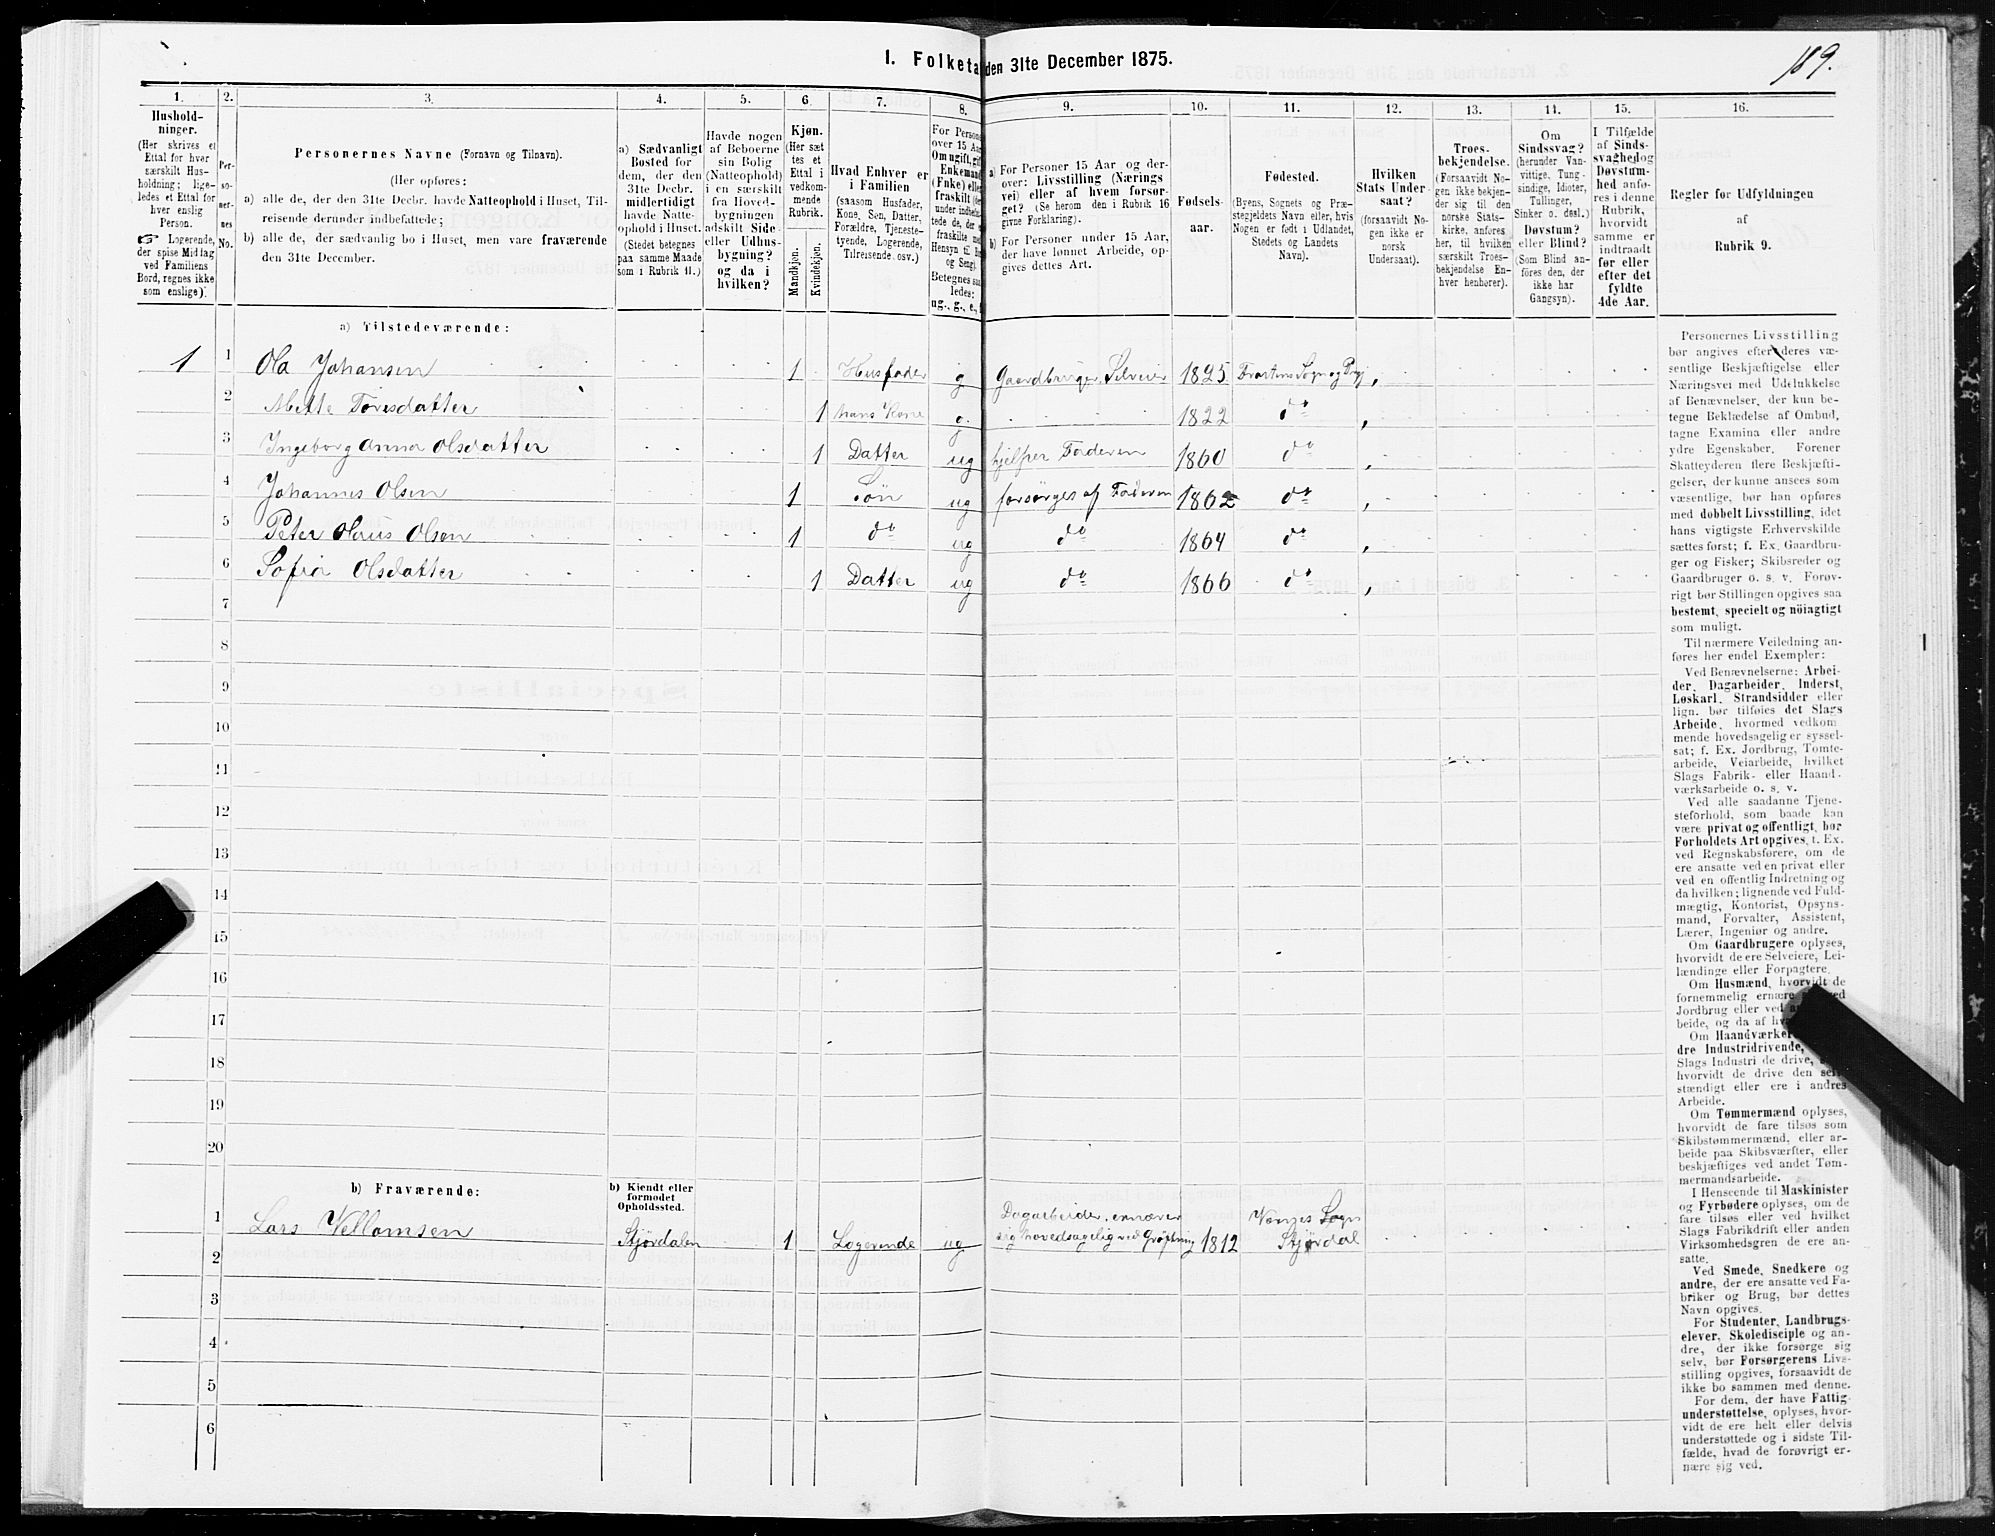 189.
I. Folketa den 31te December 1875.
1. 2. 3. 4. 5. 6. 7. 8. 9. 10. 11. 12. 13. 14. 15. 16.
Hushold-
ninger.
(Her skrives et
Ettal for hver
særskilt Hus-
holdning; lige-
ledes et Ettal for
hver enslig
Person.
☞ Logerende,
der spise Middag
ved Familiens
Bord, regnes ikke
som enslige).
Per-
so-
ner-
nes
No.
Personernes Navne (Fornavn og Tilnavn).
(Her opføres:
a) alle de, der den 31te Decbr. havde Natteophold i Huset, Til-
reisende derunder indbefattede;
b) alle de, der sædvanlig bo i Huset, men vare fraværende
den 31te December.
a) Sædvanligt
Bosted for
dem, der den
31te Decbr.
midlertidigt
havde Natte-
ophold i Huset.
(Stedet betegnes
paa samme Maade
som i Rubrik 11.)
Havde nogen
af Beboerne
sin Bolig
(Natteophold)
i en særskilt
fra Hoved-
bygningen
adskilt Side-
eller Udhus-
bygning?
og da i
hvilken?
Kjøn.
(Her sæt
tes et
Ettal i
vedkom-
mende
Rubrik.
Mandkjøn.
Kvindekjøn.
Hvad Enhver er
i Familien
(saasom Husfader,
Kone, Søn, Datter,
Forældre, Tjeneste-
tyende, Logerende,
Tilreisende osv.)
For Persone
over 15 Aar
Om ugift, gift
Enkemand
(Enke) elle
fraskilt
under indbefat
tede de, der
fraskilte
Hensyn til
og Seng).
Betegnes saa
ledes:
ug., g., e.,
a) For Personer 15 Aar og der-
over: Livsstilling (Nærings
vei) eller af hvem forsør-
get? (Se herom den i Rubrik 16
givne Forklaring).
b) For Personer under 15 Aar,
der have lønnet Arbeide, op-
gives dettes Art.
Fødsels-
aar.
Fødested.
(Byens, Sognets og Præ-
stegjeldets Navn eller, hvis
Nogen er født i Udlandet,
Stedets og Landets
Navn).
Hvilken
Stats Under-
saat?
(forsaavidt No-
gen ikke er
norsk
Undersaat).
Troes-
bekjendelse.
(Forsaavidt No-
gen ikke bekjen-
der sig til den
norske Stats-
kirke, anføres
her, til hvilken
særskilt Troes-
bekjendelse En-
hver henhører).
Om
Sindssvag?
(herunder Van-
vittige, Tung-
sindige, Idioter,
Tullinger,
Sinker o. desl.)
Døvstum?
eller Blind?
(Som Blind an-
føres den, der
ikke har
Gangsyn).
I Tilfælde
af Sinds-
svaghed og
Døvstum-
hed anfø-
res i denne
Rubrik,
hvorvidt
samme er
indtraadt
før eller
efter det
fyldte
4de Aar.
Regler for Udfyldningen
af
Rubrik 9.
a) Tilstedeværende:
1 1 Ola Johansen 1 Husfader g Gaardbruger, Selveier 1825 Frostens Sogn og Prgj
2 Mette Toresdatter 1 hans Kone g. 1822 do
3 Ingeborg Anna Olsdatter 1 Datter ug hjelper Faderen 1860 do
4 Johannes Olsen 1 Søn ug forsørges af Faderen 1862 do
5 Peter Olaus Olsen 1 do ug do 1864 do
6 Sofia Olsdatter 1 Datter ug do 1866 do
7
8
9
10
11
12
13
14
15
16
17
18
19
20
b) Fraværende:
b) Kjendt eller
formodet
Opholdssted.
1 Lars Vellomsen Stjørdalen 1 Logerende ug Dagarbeider, ernærer
sig hovedsagelig ved Grøftning 1812 Værnes Sogn
Stjørdal
2
3
4
5
6
Personernes Livsstilling
bør angives efter deres væ-
sentlige Beskjæftigelse eller
Næringsvei med Udelukkelse
af Benævnelser, der kun be-
tegne Beklædelse af Ombud,
tagne Examina eller andre
ydre Egenskaber. Forener
Skatteyderen flere Beskjæfti-
gelser, der kunne ansees som
væsentlige, bør han opføres
med dobbelt Livsstilling, idet
hans vigtigste Erhvervskilde
sættes først; f. Ex. Gaardbru-
ger og Fisker; Skibsreder og
Gaardbruger o. s. v. Forøv-
rigt bør Stillingen opgives saa
bestemt, specielt og nöiagtigt
som muligt.
Til nærmere Veiledning an-
føres her endel Exempler:
Ved Benævnelserne: Arbei-
der, Dagarbeider, Inderst,
Løskarl, Strandsidder eller
lign. bør tilføies det Slags
Arbeide, hvormed vedkom
mende hovedsagelig er syssel-
sat; f. Ex. Jordbrug, Tomte-
arbeide, Veiarbeide, hvilket
Slags Fabrik- eller Haand-
værksarbeide o. s. v.
Ved alle saadanne Tjene-
steforhold, som baade kan
være privat og offentligt, bør
Forholdets Art opgives, f. Ex.
ved Regnskabsførere, om de
ere ansatte ved en privat eller
ved en offentlig Indretning og
da hvilken; lignende ved Fuld-
mægtig, Kontorist, Opsyns-
mand, Forvalter, Assistent,
Lærer, Ingeniør og andre.
Om Gaardbrugere oplyses,
hvorvidt de ere Selveiere, Lei-
lændinge eller Forpagtere.
Om Husmænd, hvorvidt de
fornemmelig ernære ved
Jordbrug eller ved
beide, og da af
Om Haandværkere
dre Industridrivende,
Slags Industri de drive,
hvorvidt de drive den selv-
stændigt eller ere i andres
Arbeide.
Om Tømmermænd oplyses,
hvorvidt de fare tilsøs som
Skibstømmermænd, eller ar-
beide paa Skibsværfter, eller
beskjæftiges ved andet Tøm-
mermandsarbeide.
I Henseende til Maskinister
og Fyrbødere oplyses, om de
fare tilsøs eller ved hvilket
Slags Fabrikdrift eller anden
Virksomhedsgren de ere an-
satte.
Ved Smede, Snedkere og
andre, der ere ansatte ved Fa-
briker og Brug, bør dettes
Navn opgives.
For Studenter, Landbrugs-
elever, Skoledisciple og an-
dre, der ikke forsørge sig
selv, bør Forsørgerens Livs-
stilling opgives, forsaavidt de
ikke bo sammen med denne.
For dem, der have Fattig-
understøttelse, oplyses, hvor-
vidt de ere helt eller delvis
understøttede og i sidste Til-
fælde, hvad de forøvrigt er-
nære sig ved.